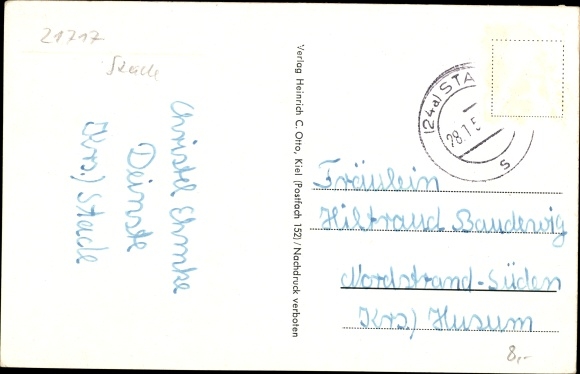 21717
Stade
Christel Ehmke
Deinste
Krs.) Stade
Verlag Heinrich C. Otto, Kiel (Postfach 152) / Nachdruck verboten
(24a) STA
28.1.5
s
Fräulein
Hiltraud Baudewig
Nordstrand-Süden
Krs.) Husum
8,-